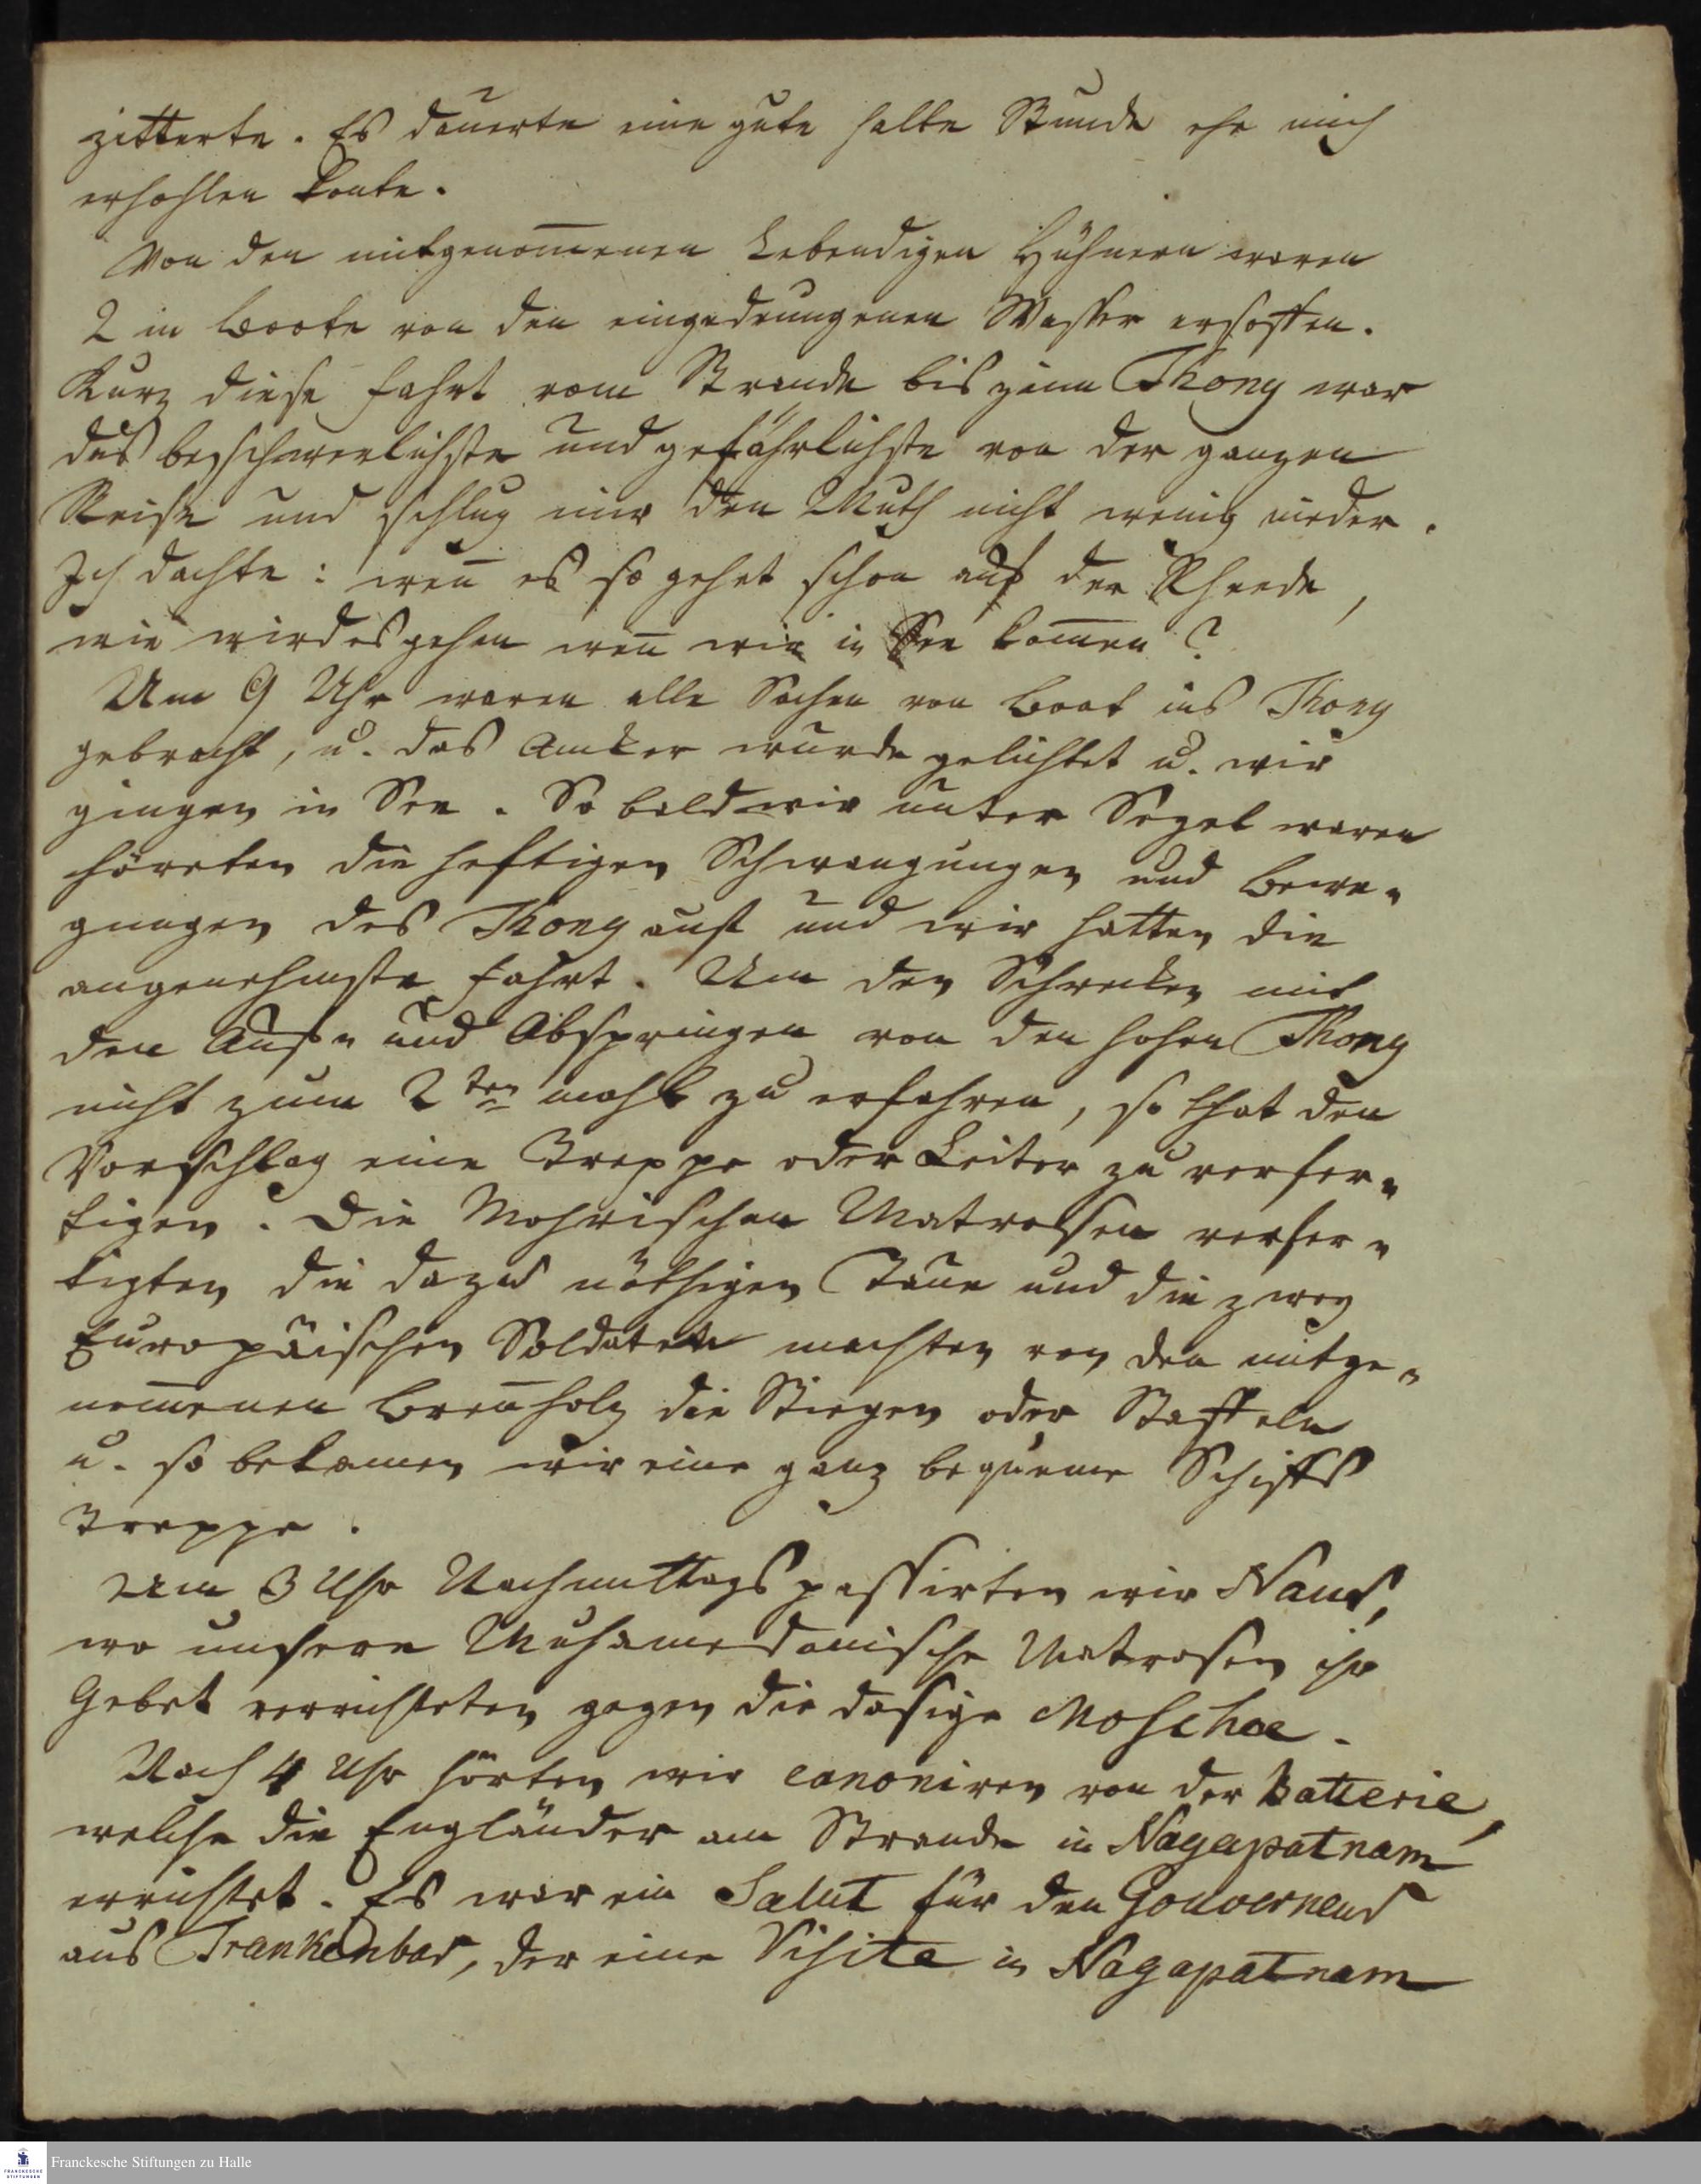 zitterte. Es dauerte eine gute halbe Stunde ehe mich
erhohlen konte.
Von den mitgenom̅enen Lebendigen Hühnern waren
2 in Boote von den eingedrungenen Wasser ersoffen.
Kurz diese Fahrt vom Strande bis zum Thony war
das beschwerlichste und gefährlichste von der ganzen
Reise und schlug mir den Muth nicht wenig nieder.
Ich dachte: wen̅ es so gehet schon auf der Rheede,
wie wird es gehen wen̅ wir in See kom̅en?
Um 9 Uhr waren alle Sachen von Boot ins Thony
gebracht, u. das Anker wurde gelichtet u. wir
gingen in See. So bald wir unter Segel waren
höreten die heftigen Schwangungen und Bewe-
gungen des Thony auf und wir hatten die
angenehmste Fahrt. Um den Schrecken mit
den Auf- und Abspringen von den hohen Thony
nicht zum 2ten mahl zu erfahren, so that den
Vorschlag eine Treppe oder Leiter zu verfer-
tigen. Die Mohrischen Matrosen verfer-
tigten die dazu nöthigen Taue und die zwey
Europäischen Soldaten machten von den mitge-
nom̅enen Bren̅holz die Stiegen oder Staffeln
u. so bekamen wir eine ganz bequeme Schiffs
Treppe.
Um 3 Uhr Nachmittags passirten wir Naur,
wo unsere Muhamedanische Matrosen ihr
Gebet verrichteten gegen die dasige Moschee.
Nach 4 Uhr hörten wir canoniren von der Batterie,
welche die Engländer am Strande in Nagapatnam
errichtet. Es war ein Salut für den Gouverneur
aus Trankenbar, der eine Visite in Nagapatnam
Franckesche Stiftungen zu Halle
FRANCKESCHE
STIFTUNGEN